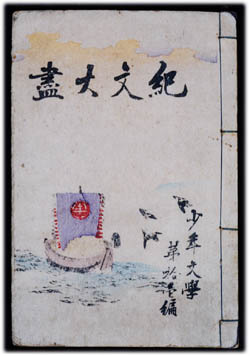 紀文大盡
少年文學
第拾編